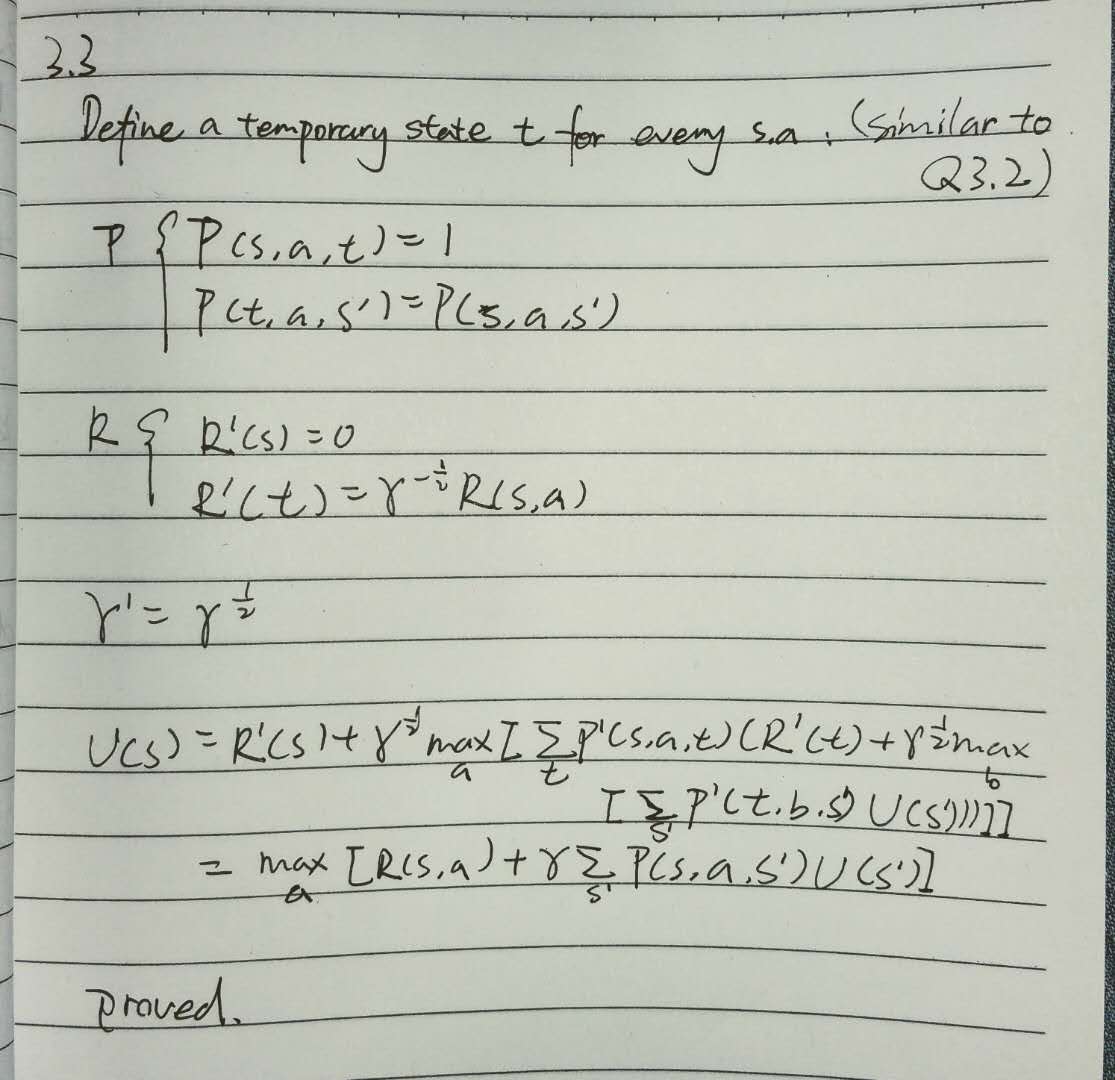 3.3
Define a temporary state t for every s.a. (Similar to
Q3.2)
P { P(s,a,t)=1
P(t,a,s')=P(s,a,s')
R { R'(s)=0
R'(t)=γ^{-1/2} R(s,a)
γ'=γ^{1/2}
U(s)=R'(s)+γ^{1/2} max_a [Σ_t P'(s,a,t)(R'(t)+γ^{1/2} max_b
[Σ_{s'} P'(t.b.s') U(s')))]]
= max_a [R(s,a)+γ Σ_{s'} P(s,a,s')U(s')]
proved.